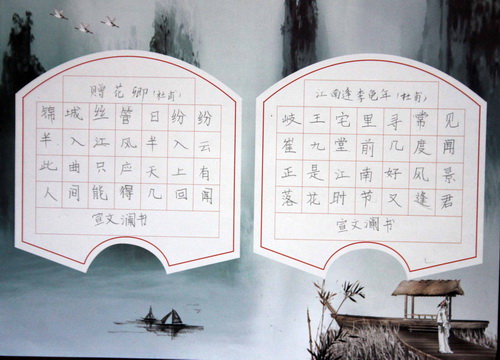 赠花卿（杜甫）
锦城丝管日纷纷
半入江风半入云
此曲只应天上有
人间能得几回闻
宣文澜书
江南逢李龟年（杜甫）
岐王宅里寻常见
崔九堂前几度闻
正是江南好风景
落花时节又逢君
宣文澜书